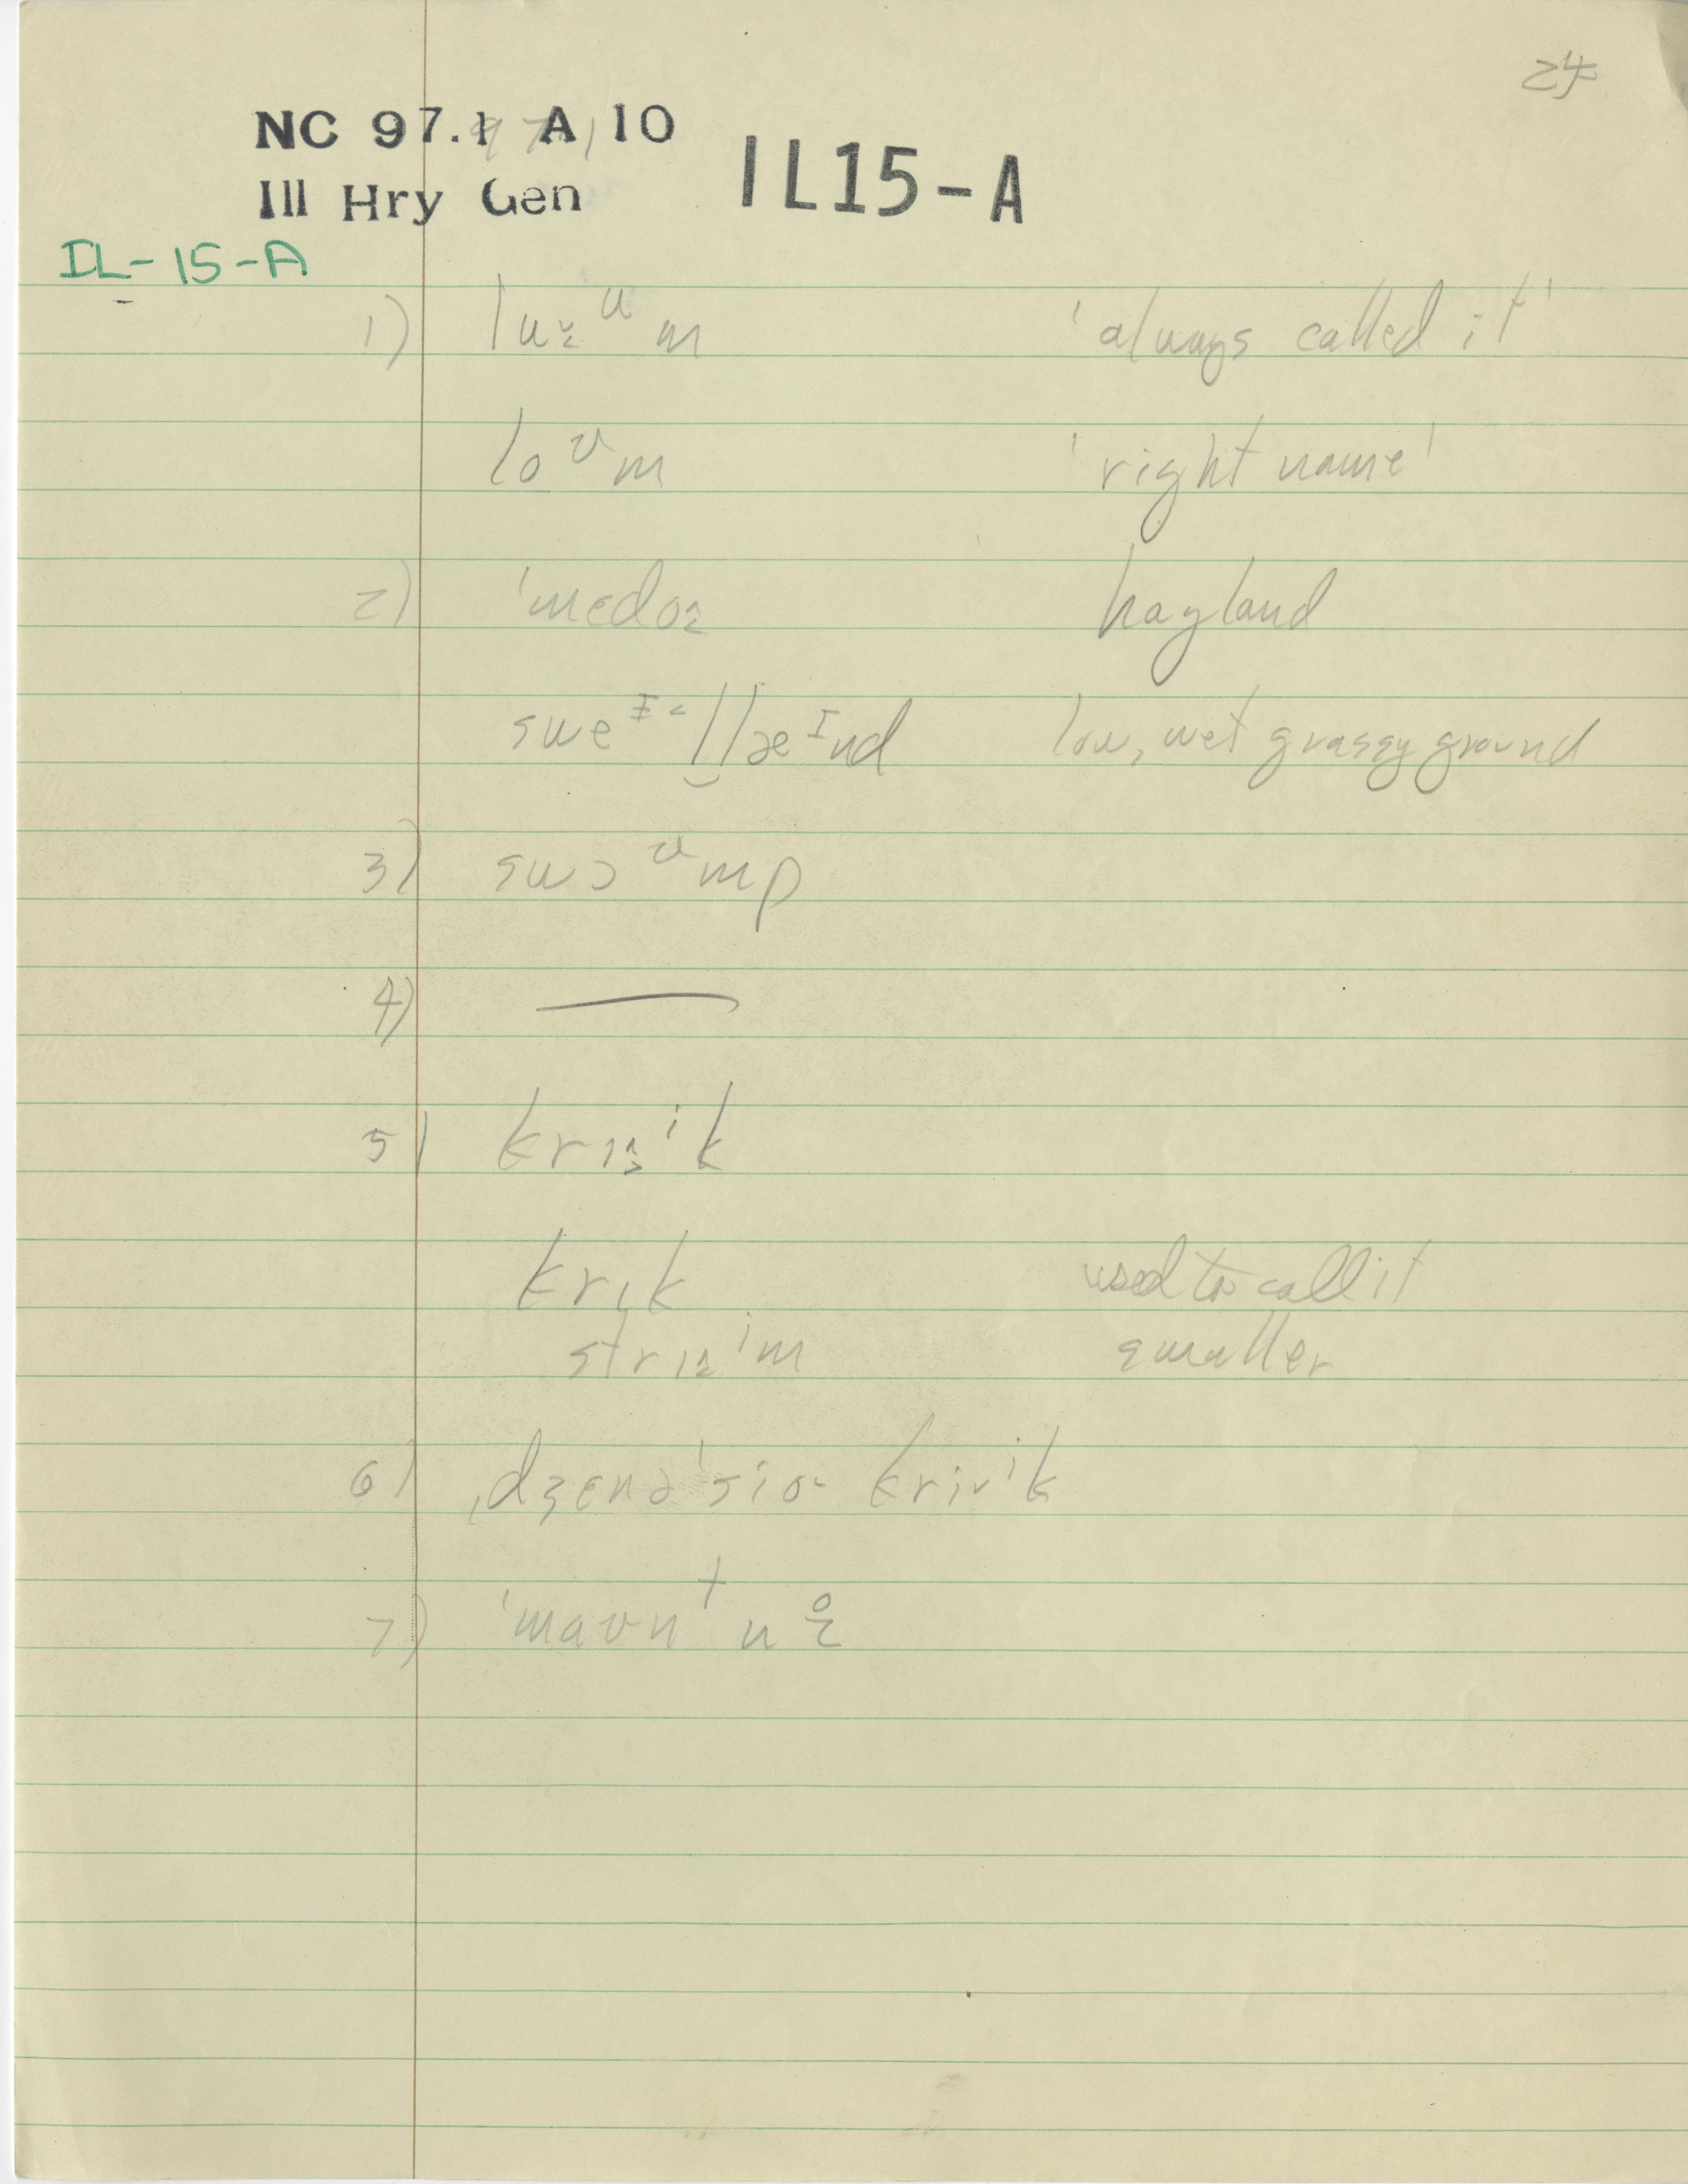 24
NC 97.1 A 10
Ill Hry Gen
IL15-A
IL-15-A
1) luˑᵘm 'always called it'
loᶷm 'right name'
2) ˈmɛdoˑ hayland
sweᶦ˂l‿læᶦnd low, wet grassy ground
3) swɔᶷmp
4) —
5) kriˑⁱk
krɪk used to call it
striˑⁱm smaller
6) ˌdʒɛnəˈsiə krivⁱk
7) ˈmaʊnᵗn̥